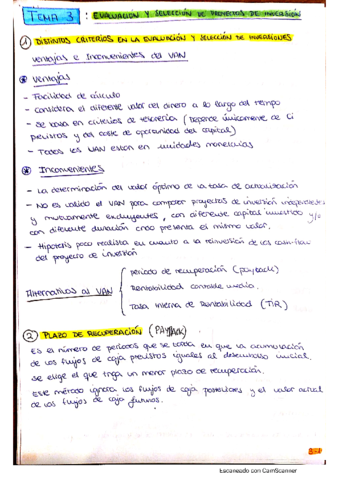 TEMA 3 : EVALUACIÓN Y SELECCIÓN DE PROYECTOS DE INVERSIÓN
1 DISTINTOS CRITERIOS EN LA EVALUACIÓN Y SELECCIÓN DE INVERSIONES
Ventajas e Inconvenientes del VAN
Ventajas
- Facilidad de cálculo
- Considera el diferente valor del dinero a lo largo del tiempo
- Se basa en criterios de tesorería (Depende únicamente de
previstos y del coste de oportunidad del capital)
- Todos los VAN están en unidades monetarias
Inconvenientes
- La determinación del valor óptimo de la tasa de actualización
- No es válido el VAN para comparar proyectos de inversión independientes
y mutuamente excluyentes, con diferente capital invertido y/o
con diferente duración cdo presenta el mismo valor.
- Hipótesis poco realista en cuanto a la reinversión de los cash-flow
del proyecto de inversión
Alternativas al VAN
periodo de recuperación (payback)
Rentabilidad contable media.
Tasa Interna de Rentabilidad (TIR)
2 PLAZO DE RECUPERACIÓN (PAYBACK)
Es el número de periodos que se tarda en que la acumulación
de los flujos de caja previstos iguales al desembolso inicial.
Se elige el que tenga un menor plazo de recuperación.
Este método ignora los flujos de caja posteriores y el valor actual
de los flujos de caja futuros.
3-1
Escaneado con CamScanner